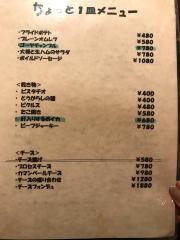 ちょっと1皿メニュー
・フライドポテト ¥480
・プレーンオムレツ ¥580
・ゴーヤチャンプル ¥780
・大根と生ハムのサラダ ¥780
・ボイルドソーセージ ¥1080
<乾き物>
・ピスタチオ ¥400
・とうがらしの種 ¥400
・ピクルス ¥400
・たこ焼き ¥580
・肝入り ¥680
・ビーフジャーキー ¥780
<チーズ>
・チーズ揚げ ¥580
・プロセスチーズ ¥780
・カマンベールチーズ ¥980
・チーズの盛り合わせ ¥1280
・チーズフォンデュ ¥1880